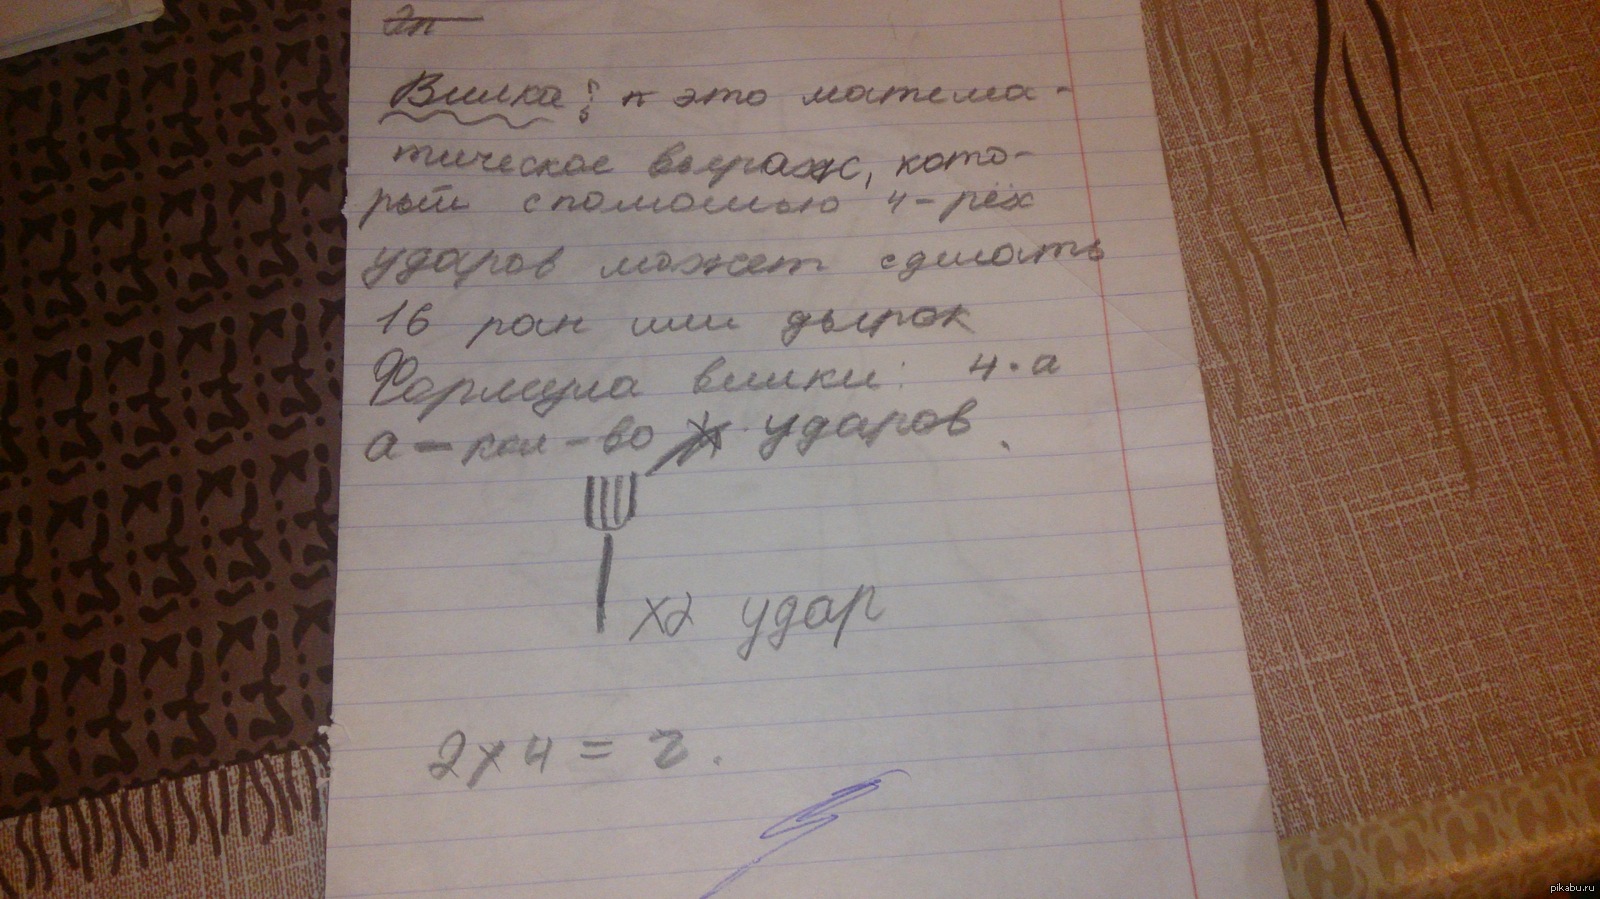 Эт
Вилка: это матема-
тическое выраж, кото-
рый с помошью 4-рёх
ударов может сделать
16 ран или дырок
Формула вилки: 4·а
а - кол-во ударов.
х2 удар
2х4= 2.
pikabu.ru